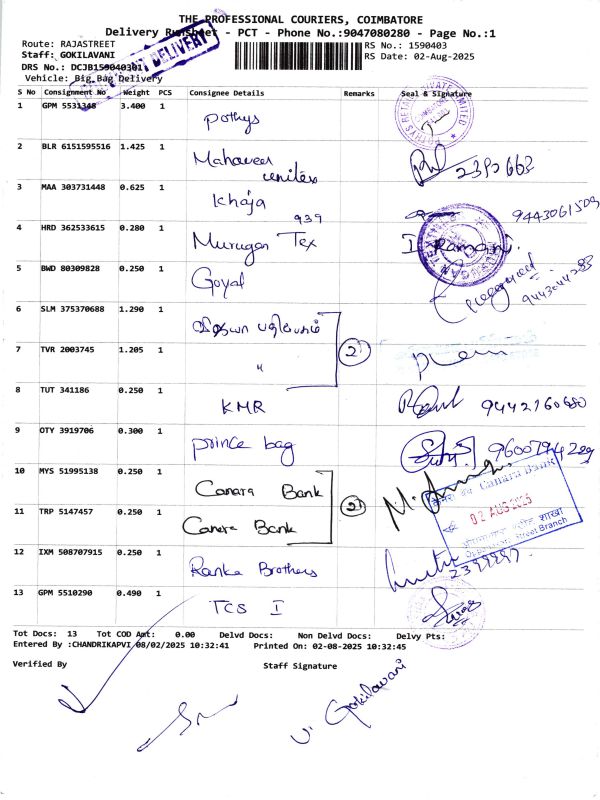 THE PROFESSIONAL COURIERS, COIMBATORE
Delivery Runsheet - PCT - Phone No.:9047080280 - Page No.:1
Route: RAJASTREET
RS No.: 1590403
Staff: GOKILAVANI
RS Date: 02-Aug-2025
DRS No.: DCJB15904030
Vehicle: Big Bag Delivery
DELIVERY
S No Consignment No Weight PCS Consignee Details Remarks Seal & Signature
1 GPM 5531348 3.400 1 Pothys
2 BLR 6151595516 1.425 1 Mahaveer 2392663
3 MAA 303731448 0.625 1 Khaja 939 9443061509
4 HRD 362533615 0.280 1 Murugan Tex
5 BWD 80309828 0.250 1 Goyal 9443044283
6 SLM 375370688 1.290 1
7 TVR 2003745 1.205 1 " 2
8 TUT 341186 0.250 1 KMR 9442160680
9 OTY 3919706 0.300 1 prince bag
10 MYS 51995138 0.250 1 Canara Bank 2
Canara Bank
02 AUG 2025
11 TRP 5147457 0.250 1 Canera Bank
Street Branch
12 IXM 508707915 0.250 1 Ranka Brothers
13 GPM 5510290 0.490 1 TCS I
Tot Docs: 13 Tot COD Amt: 0.00 Delvd Docs: Non Delvd Docs: Delvy Pts:
Entered By :CHANDRIKAPVI 08/02/2025 10:32:41 Printed On: 02-08-2025 10:32:45
Verified By Staff Signature
V. Gokilavani